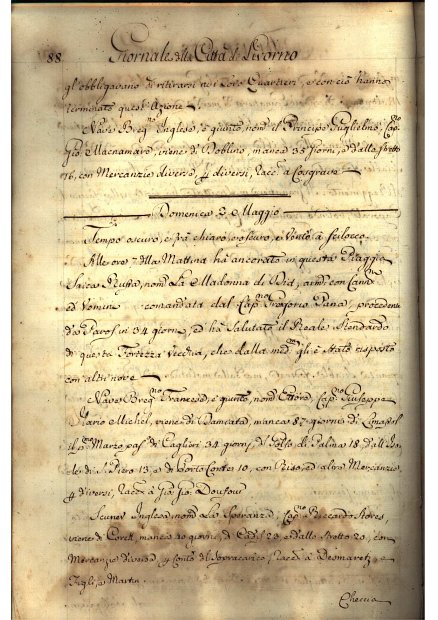 88 Giornale della Città di Livorno
gl'obbligavano di ritirarsi nei Loro Quartieri, e con ciò hanno
terminato quest'Azione
Nave Breq:no Inglese, è giunto, nom:to il Principe Guglielmo, Cap:no
Gio: Macnamara, viene di Doblino, manca 35 giorni, e dallo Stretto
16, con Mercanzie diverse, p diversi, Racc:a a Cosgrave
Domenica 2 Maggio
Tempo oscuro, e frà chiaro, e oscuro, e Vento à Scilocco
Alle ore 7 della Mattina hà ancorato in questa Spiaggia
Saica Russa, nom:ta La Madonna di, arm:ta con Cann:ni
ed Uomini comandata dal Cap:no Gregorio, procedente
da Paros in 34 giorni, ed hà Salutato il Reale Stendardo
di questa Fortezza Vecchia, che dalla med:ma gli è stato risposto
con altri nove
Nave Breq:no Francese, è giunto, nom:to Ettore, Cap:no Giuseppe
Ilario Michel, viene di Damiata, manca 87 giorni, di Limassol
il p:mo Marzo, pas:to di Caglieri 34 giorni, di Golfo di Palma 18, dall'Iso-
le di S. Piero 13, e di Porto Conte 10, con Riso, ed altre Mercanzie,
p diversi, Racc:a a Gio: Gio: Doufour
Scuner Inglese, nom:to La Speranza, Cap:no Riccardo,
viene di Corck, manca 40 giorni, di Cadis 23, e dallo Stretto 20, con
Mercanzie diverse, p Conto del Sopracarico, Racc:a a Desmaretz, e
Figli, e Martin
Checcia